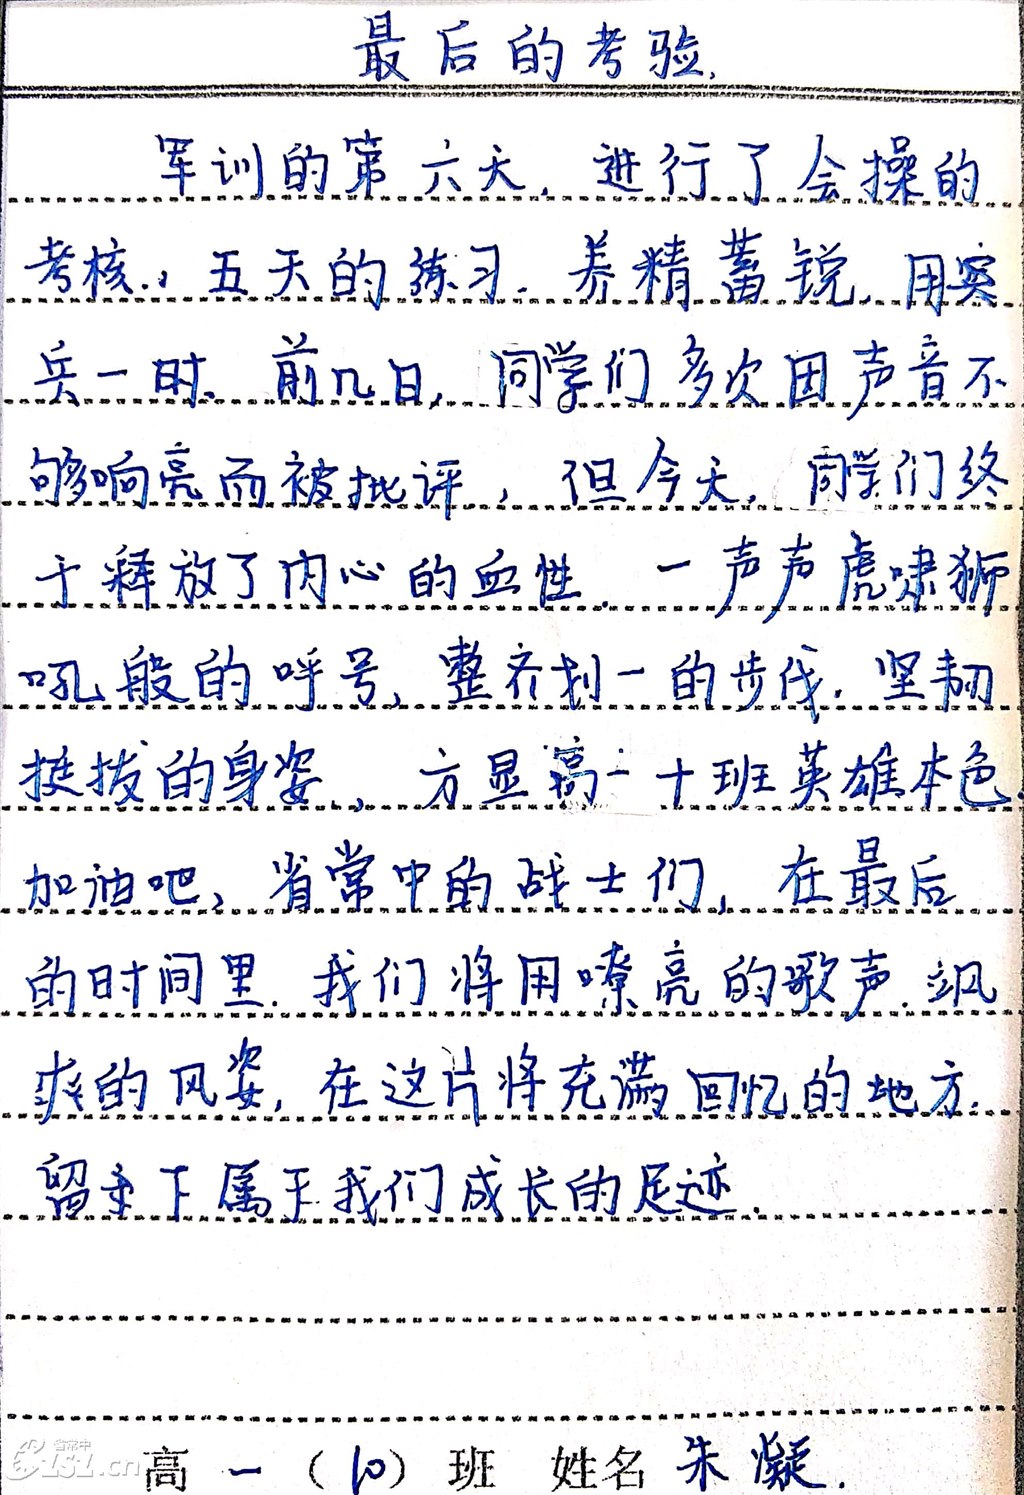 最后的考验.
军训的第六天,进行了会操的
考核.,五天的练习.养精蓄锐,用实
兵一时。前几日,同学们多次因声音不
够响亮而被批评,但今天,同学们终
于释放了内心的血性.一声声虎啸狮
吼般的呼号,整齐划一的步伐.坚韧
挺拔的身姿,方显高一十班英雄本色.
加油吧,省常中的战士们,在最后
的时间里.我们将用嘹亮的歌声.飒
爽的风姿,在这片将充满回忆的地方.
留下属于我们成长的足迹.
高一(10)班 姓名 朱凝.
省常中
CZSLSZ.cn